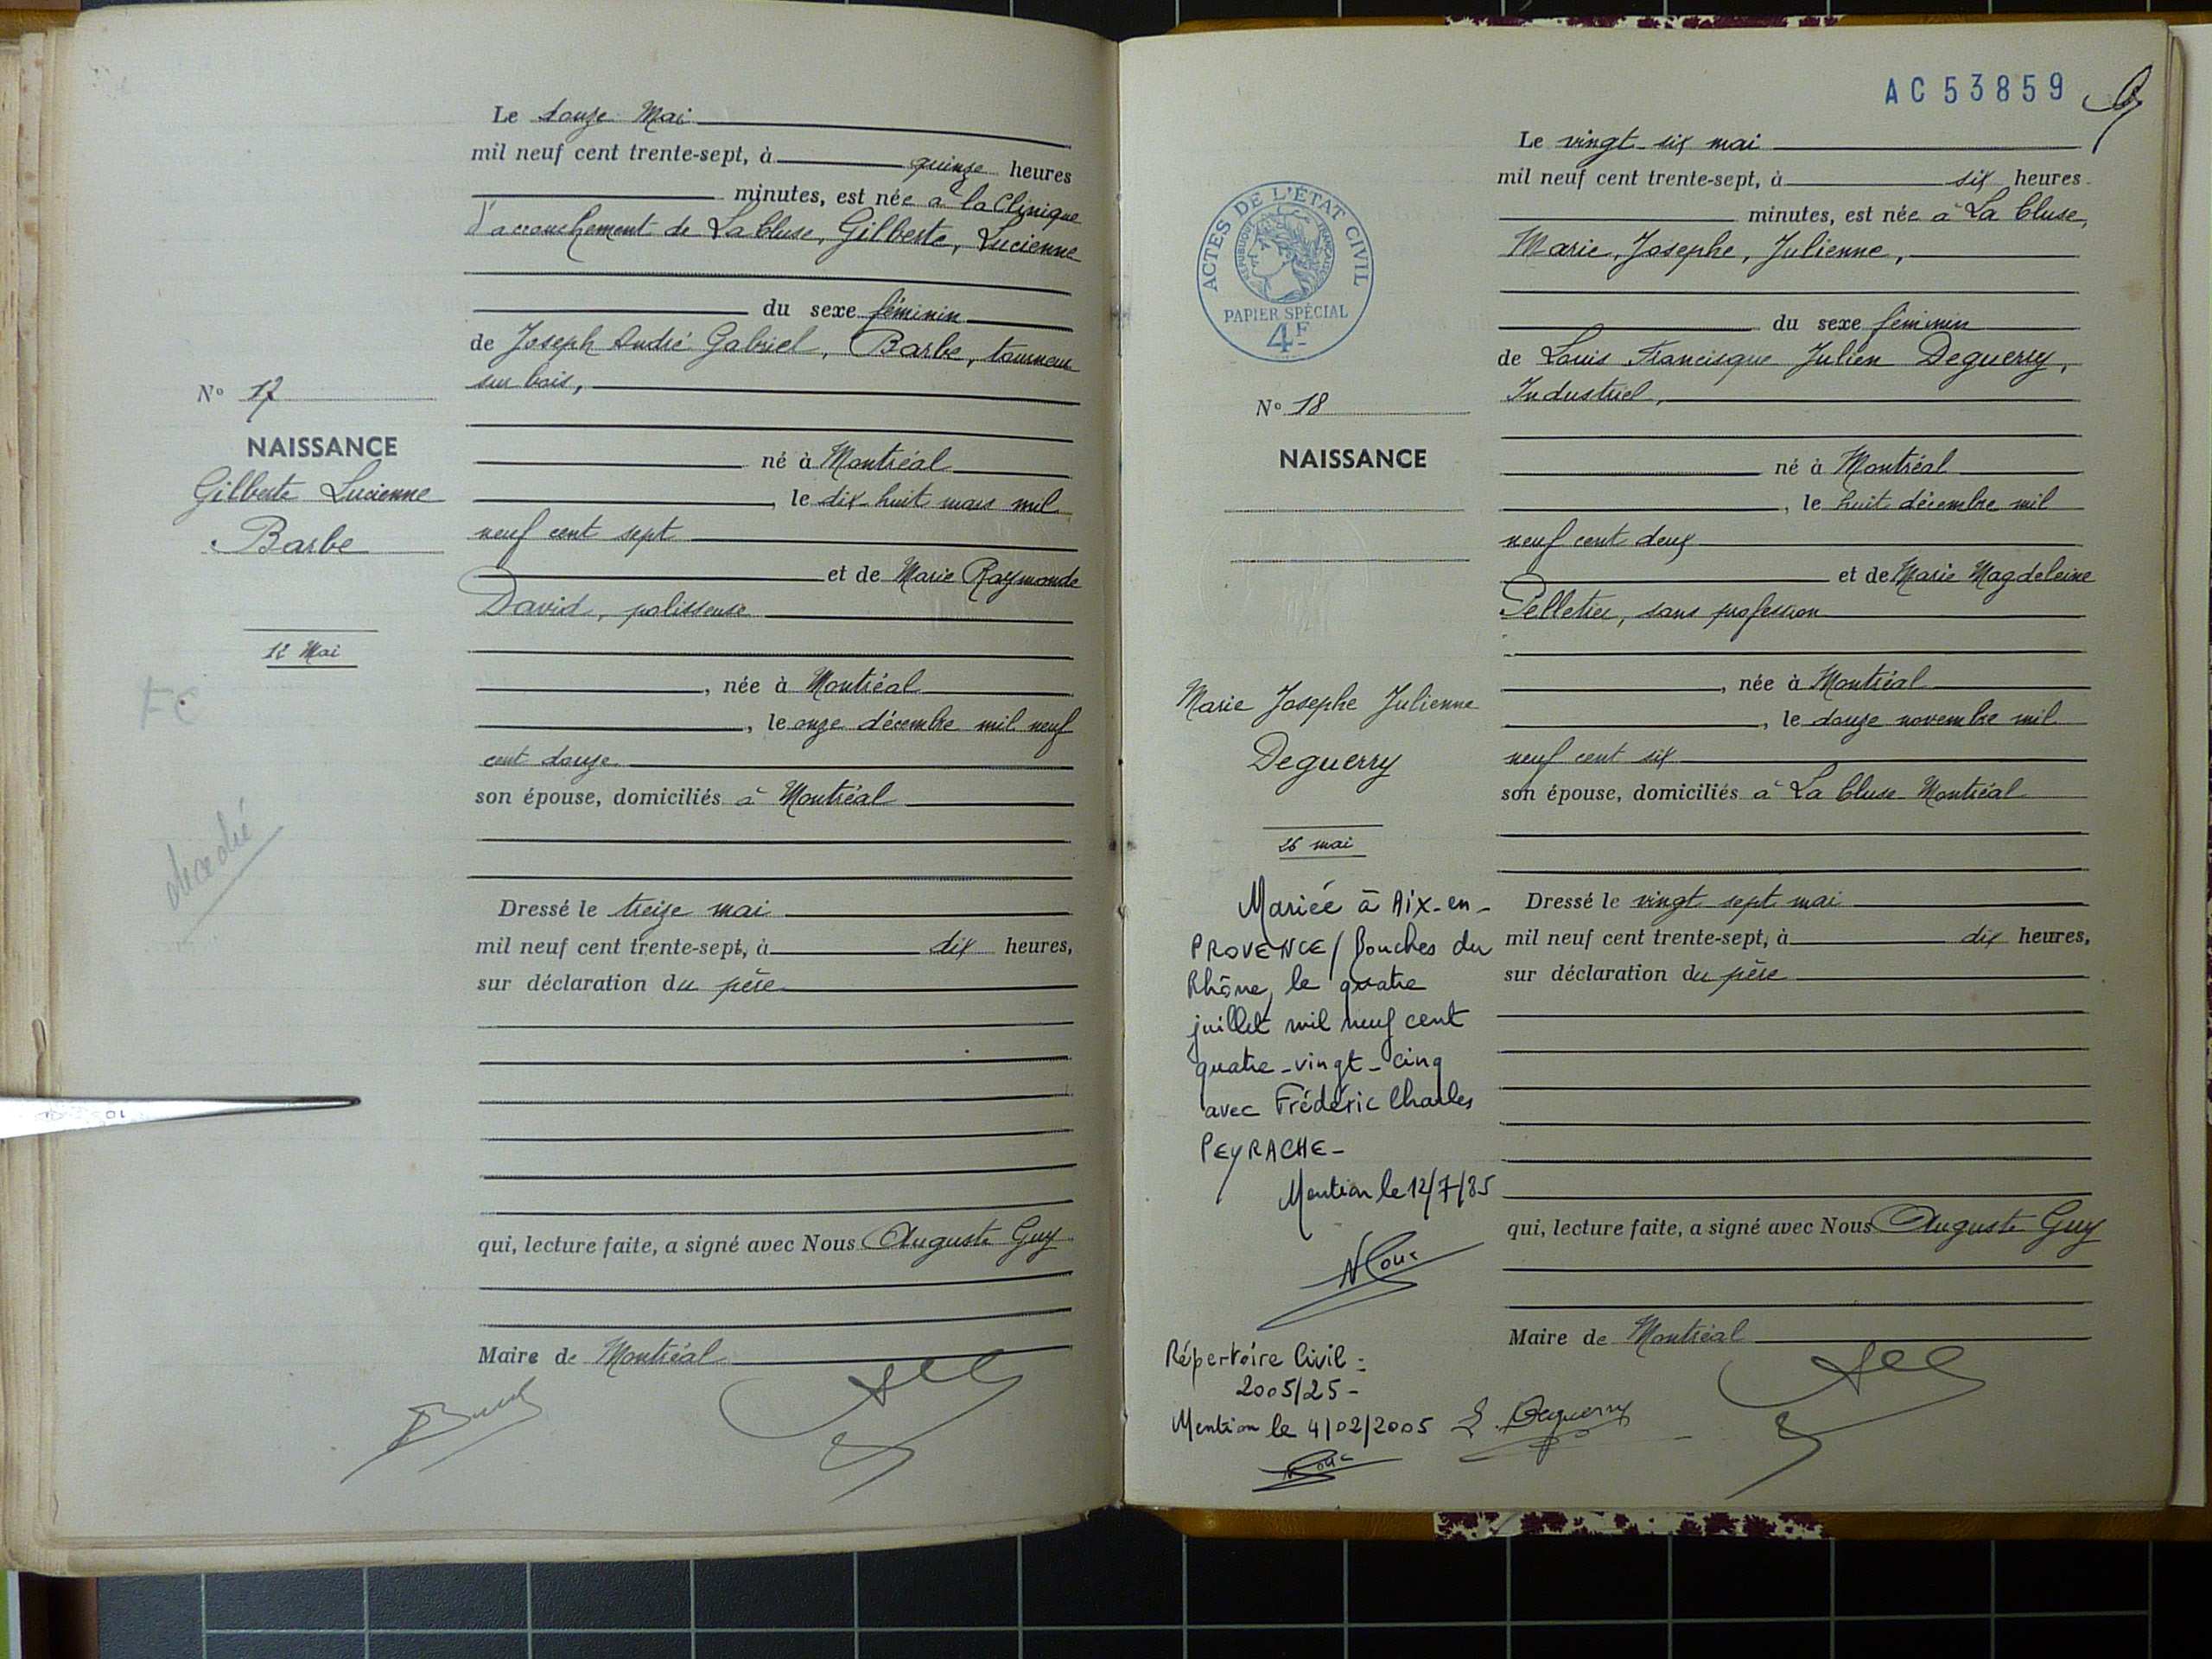 Le douze Mai
mil neuf cent trente-sept, à quinze heures
minutes, est née à la Clinique
d'accouchement de La Cluse, Gilberte, Lucienne
du sexe féminin
de Joseph André Gabriel, Barbe, tourneur
sur bois,
né à Montréal
, le dix-huit mars mil
neuf cent sept
et de Marie Raymonde
David, polisseuse
, née à Montréal
, le onze décembre mil neuf
cent douze
son épouse, domiciliés à Montréal
Dressé le treize mai
mil neuf cent trente-sept, à dix heures,
sur déclaration du père
qui, lecture faite, a signé avec Nous Auguste Guy
Maire de Montréal
N° 17
NAISSANCE
Gilberte Lucienne
Barbe
12 Mai
FC
décédé
AC53859
Le vingt-six mai
mil neuf cent trente-sept, à six heures
minutes, est née à La Cluse,
Marie, Josephe, Julienne,
du sexe féminin
de Louis Francisque Julien Deguerry,
Industriel,
né à Montréal
, le huit décembre mil
neuf cent deux
et de Marie Magdeleine
Pelletier, sans profession
, née à Montréal
, le douze novembre mil
neuf cent six
son épouse, domiciliés à La Cluse Montréal
Dressé le vingt sept mai
mil neuf cent trente-sept, à dix heures,
sur déclaration du père
qui, lecture faite, a signé avec Nous Auguste Guy
Maire de Montréal
L. Deguerry
ACTES DE L'ÉTAT CIVIL
RÉPUBLIQUE FRANÇAISE
PAPIER SPÉCIAL
4F
N° 18
NAISSANCE
Marie Josephe Julienne
Deguerry
26 mai
Mariée à Aix-en-
PROVENCE / Bouches du
Rhône, le quatre
juillet mil neuf cent
quatre-vingt-cinq
avec Frédéric Charles
PEYRACHE-
Mention le 12/7/85
Répertoire Civil :
2005/25-
Mention le 4/02/2005